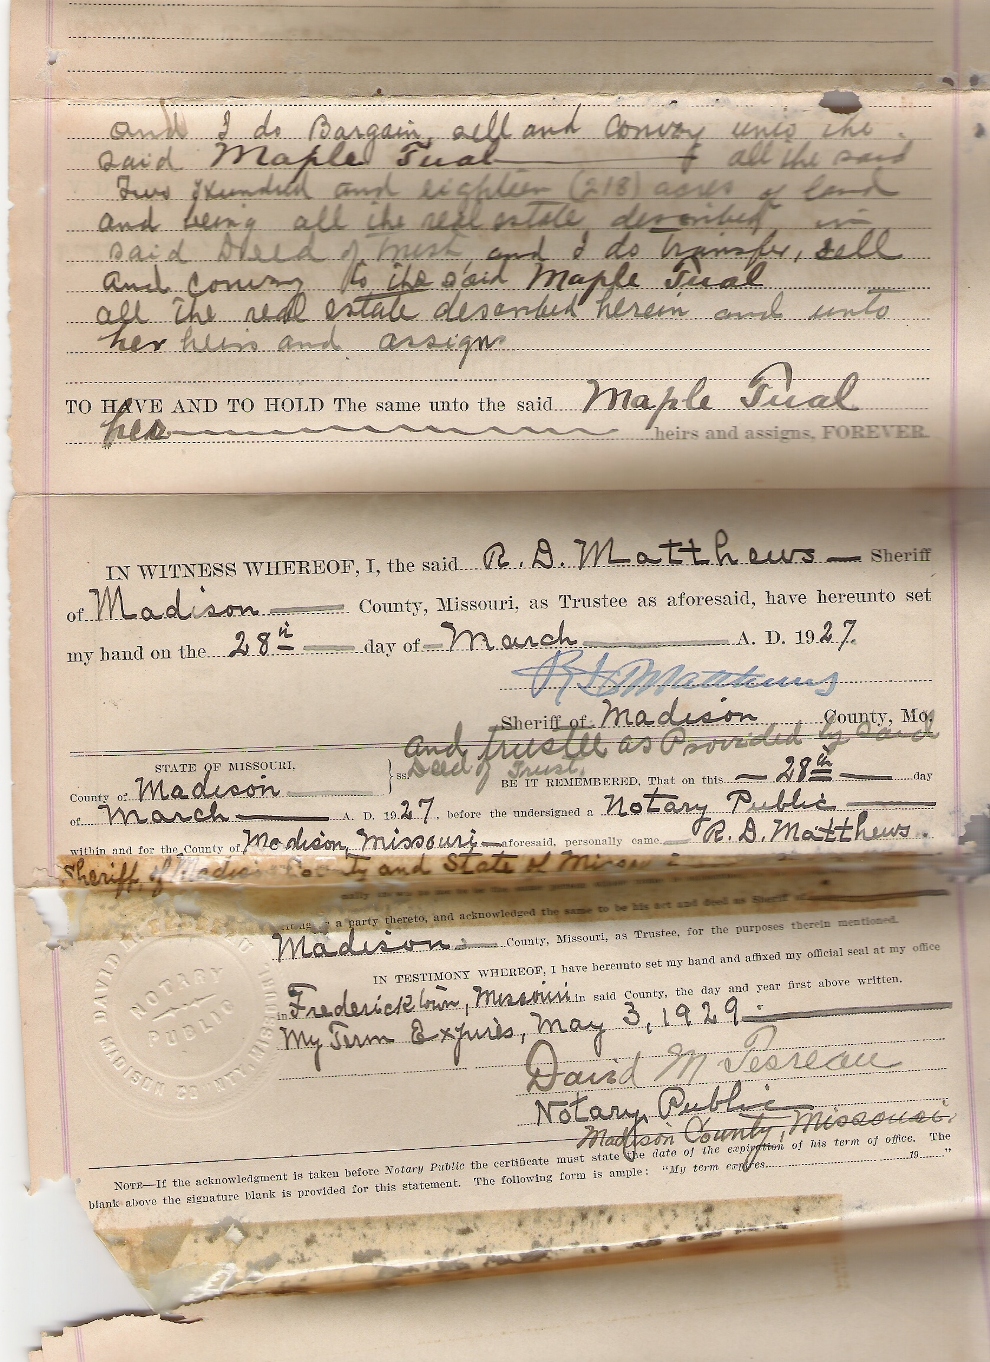 and I do Bargain, sell and Convey unto the
said Maple Tual all the said
Two Hundred and eighteen (218) acres of land
and being all the real estate described in
said Deed of Trust, and I do transfer, sell
and Convey to the said Maple Tual
all the real estate described herein and unto
her heirs and assigns
TO HAVE AND TO HOLD The same unto the said Maple Tual
her heirs and assigns, FOREVER.
IN WITNESS WHEREOF, I, the said R. D. Matthews Sheriff
of Madison County, Missouri, as Trustee as aforesaid, have hereunto set
my hand on the 28th day of March A. D. 1927.
R D Matthews
Sheriff of Madison County, Mo.
and trustee as Provided by said
Deed of Trust.
STATE OF MISSOURI,
County of Madison ss.
BE IT REMEMBERED, That on this 28th day
of March A. D. 1927, before the undersigned a Notary Public
within and for the County of Madison, Missouri aforesaid, personally came R. D. Matthews.
Sheriff, of Madison County and State of Missouri
a party thereto, and acknowledged the same to be his act and deed as Sheriff of
Madison County, Missouri, as Trustee, for the purposes therein mentioned.
IN TESTIMONY WHEREOF, I have hereunto set my hand and affixed my official seal at my office
in Fredericktown, Missouri in said County, the day and year first above written.
My Term Expires, May 3, 1929
DAVID
NOTARY
PUBLIC
MADISON COUNTY, MISSOURI
David M Tesreau
Notary Public
Madison County, Missouri.
NOTE—If the acknowledgment is taken before Notary Public the certificate must state the date of the expiration of his term of office. The
blank above the signature blank is provided for this statement. The following form is ample: "My term expires 19 "